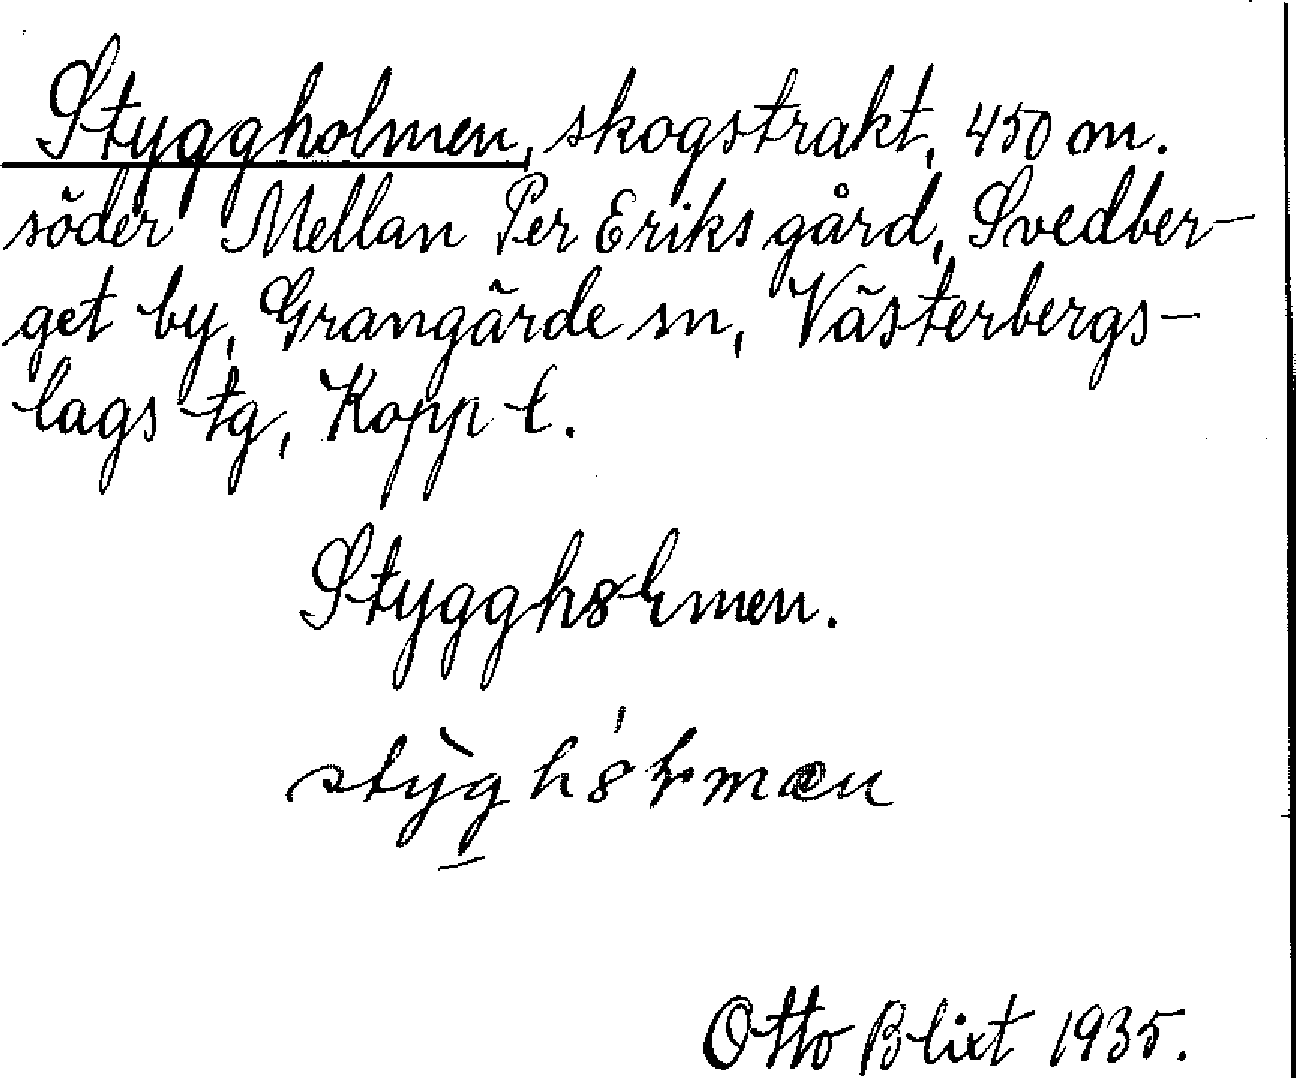 Styggholmen, skogstrakt, 450 m.
söder Mellan Per Eriks gård, Svedber-
get by, Grangärde sn, Västerbergs-
lags tg, Kopp l.
Otto Blixt 1935.